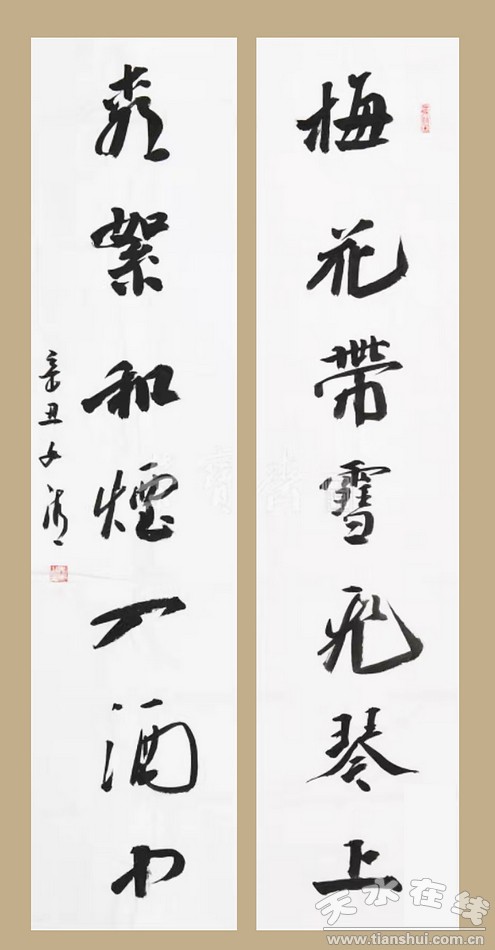 梅花帶雪飛琴上
柳絮和煙入酒中
辛丑
天水在线
www.tianshui.com.cn